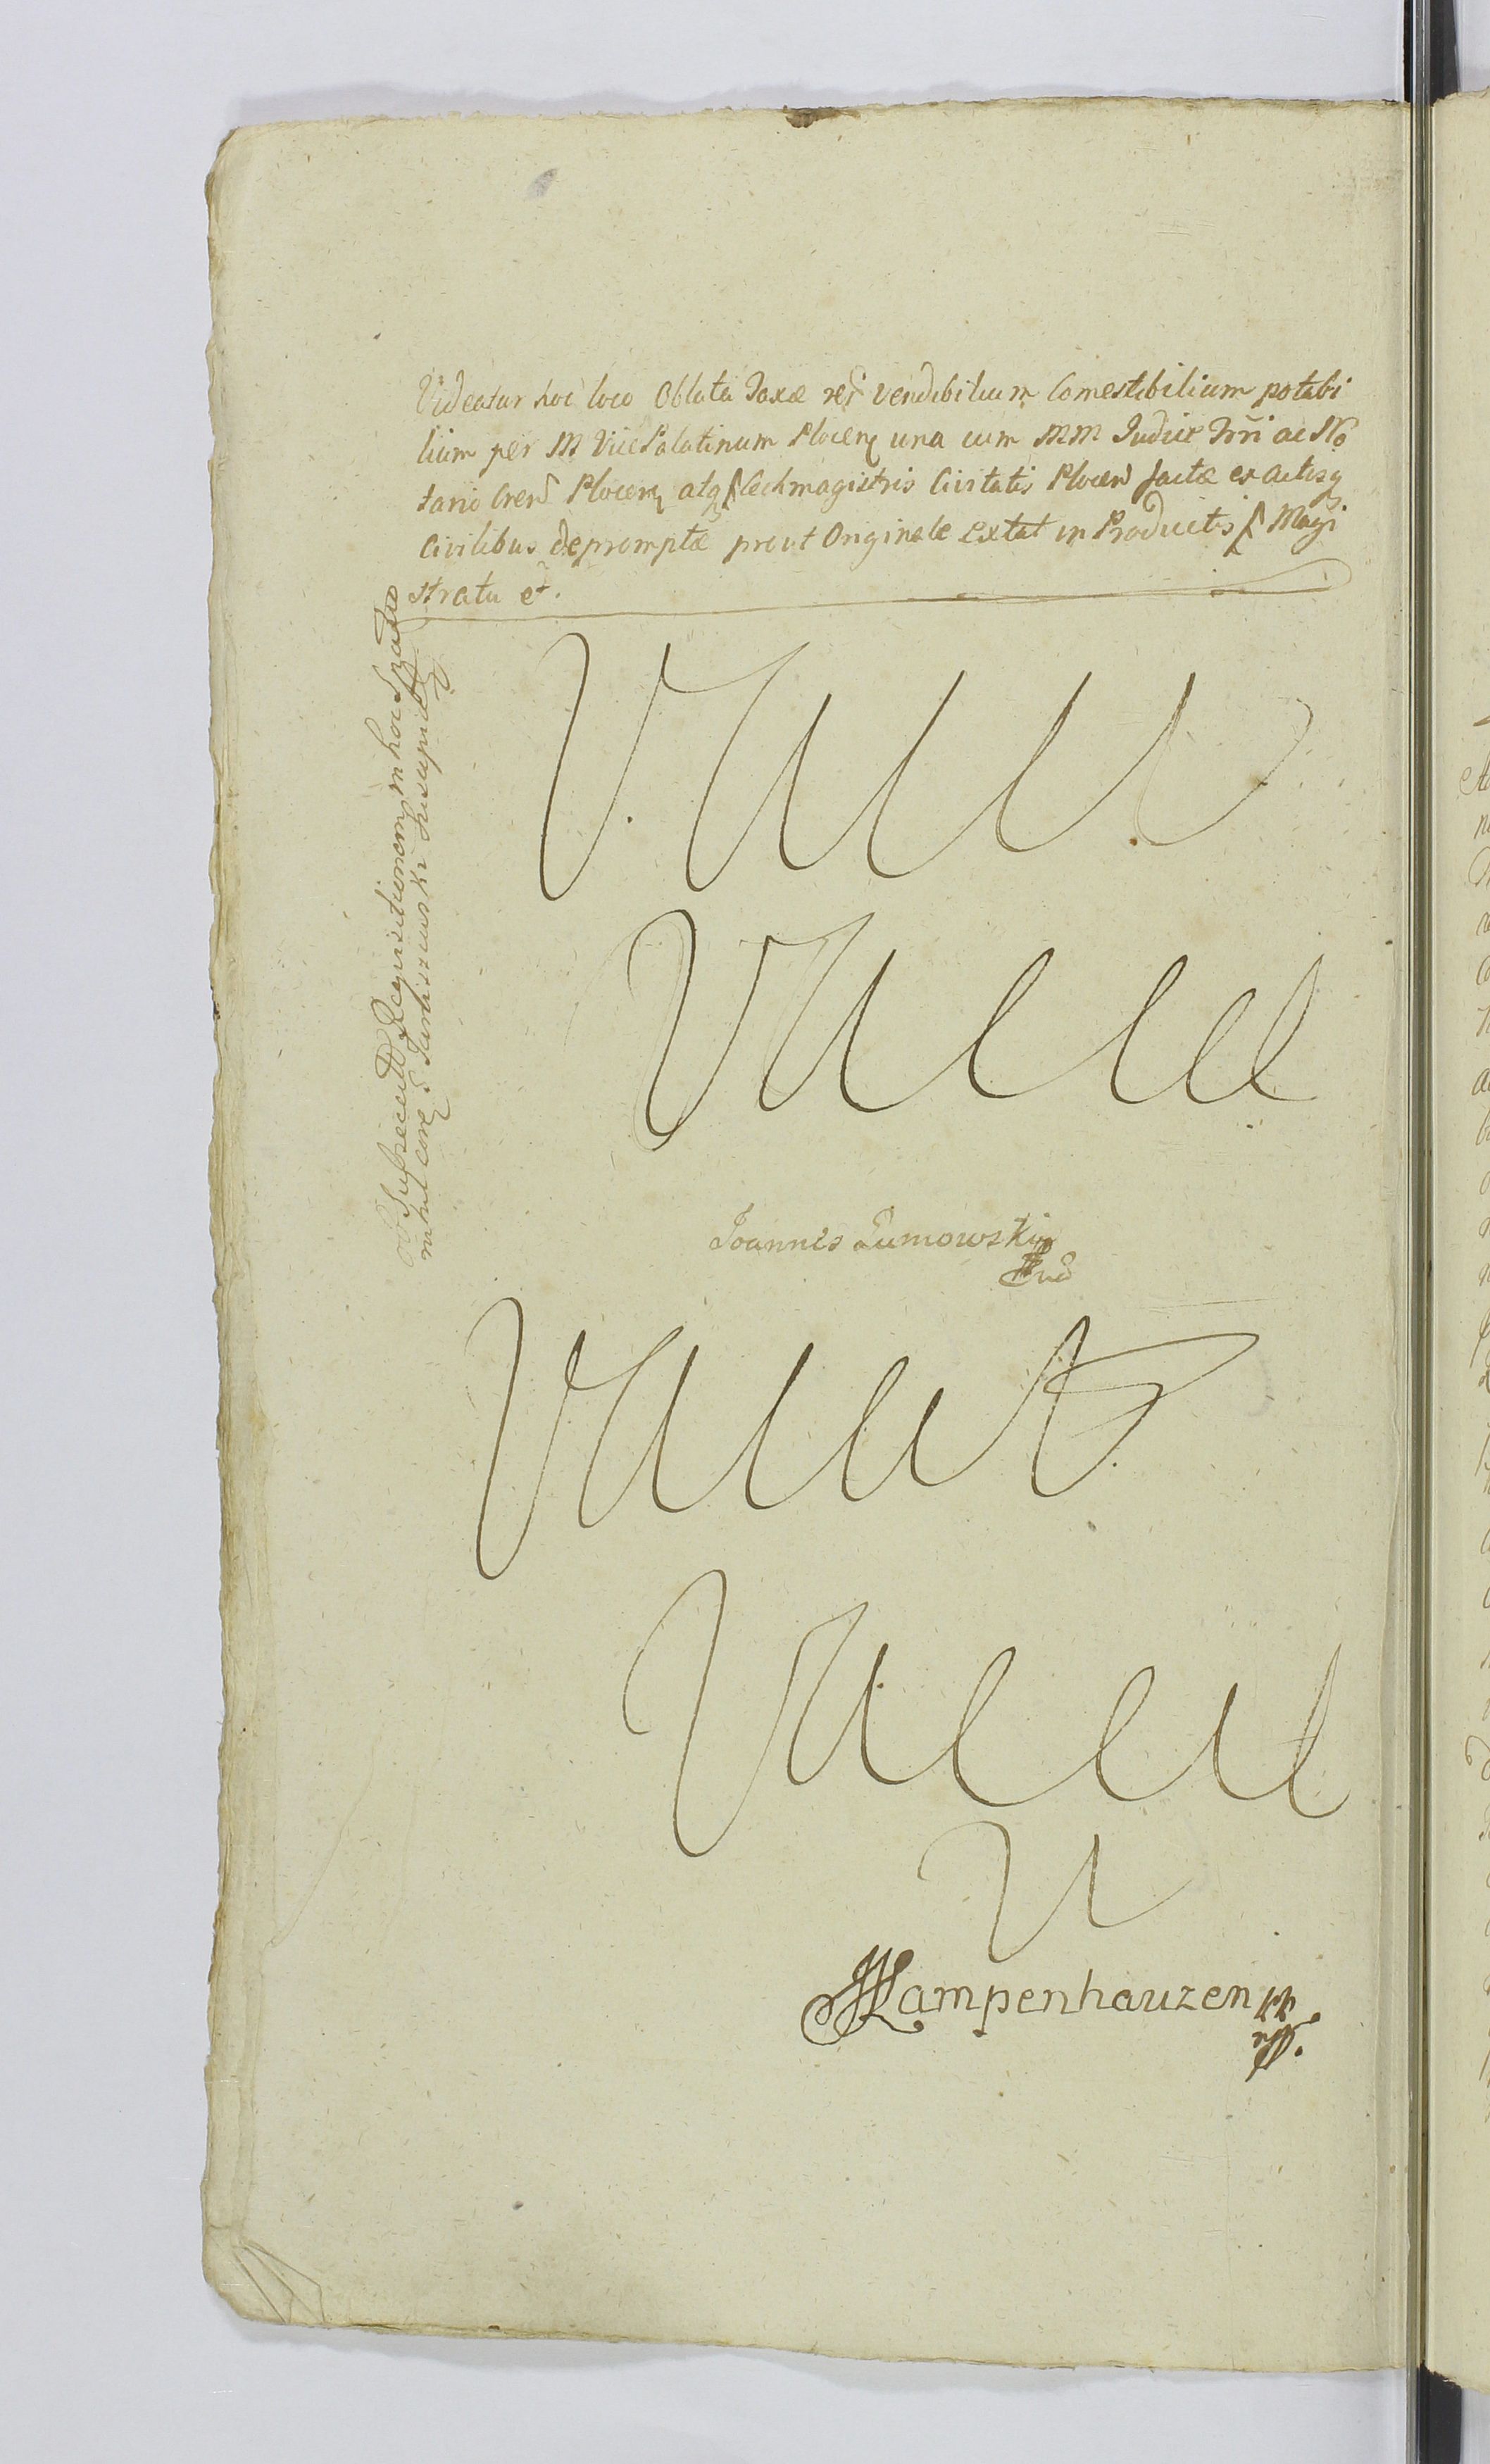 Videatur hoc loco Oblata Taxæ rer vendibilium Comestibilium potabi
lium per M Vice Palatinum Plocen una cum MM Judice Trri ac No
tario Cren Plocen atq Cechmagistris Civitatis Plocen factæ ex Actisq
Civilibus depromptæ prout Originale extat in Productis Magi
stratu et.
Suscepit Requisitionem in hoc Spatio
nihil
Joannes Zumowski
Kampenhauzen